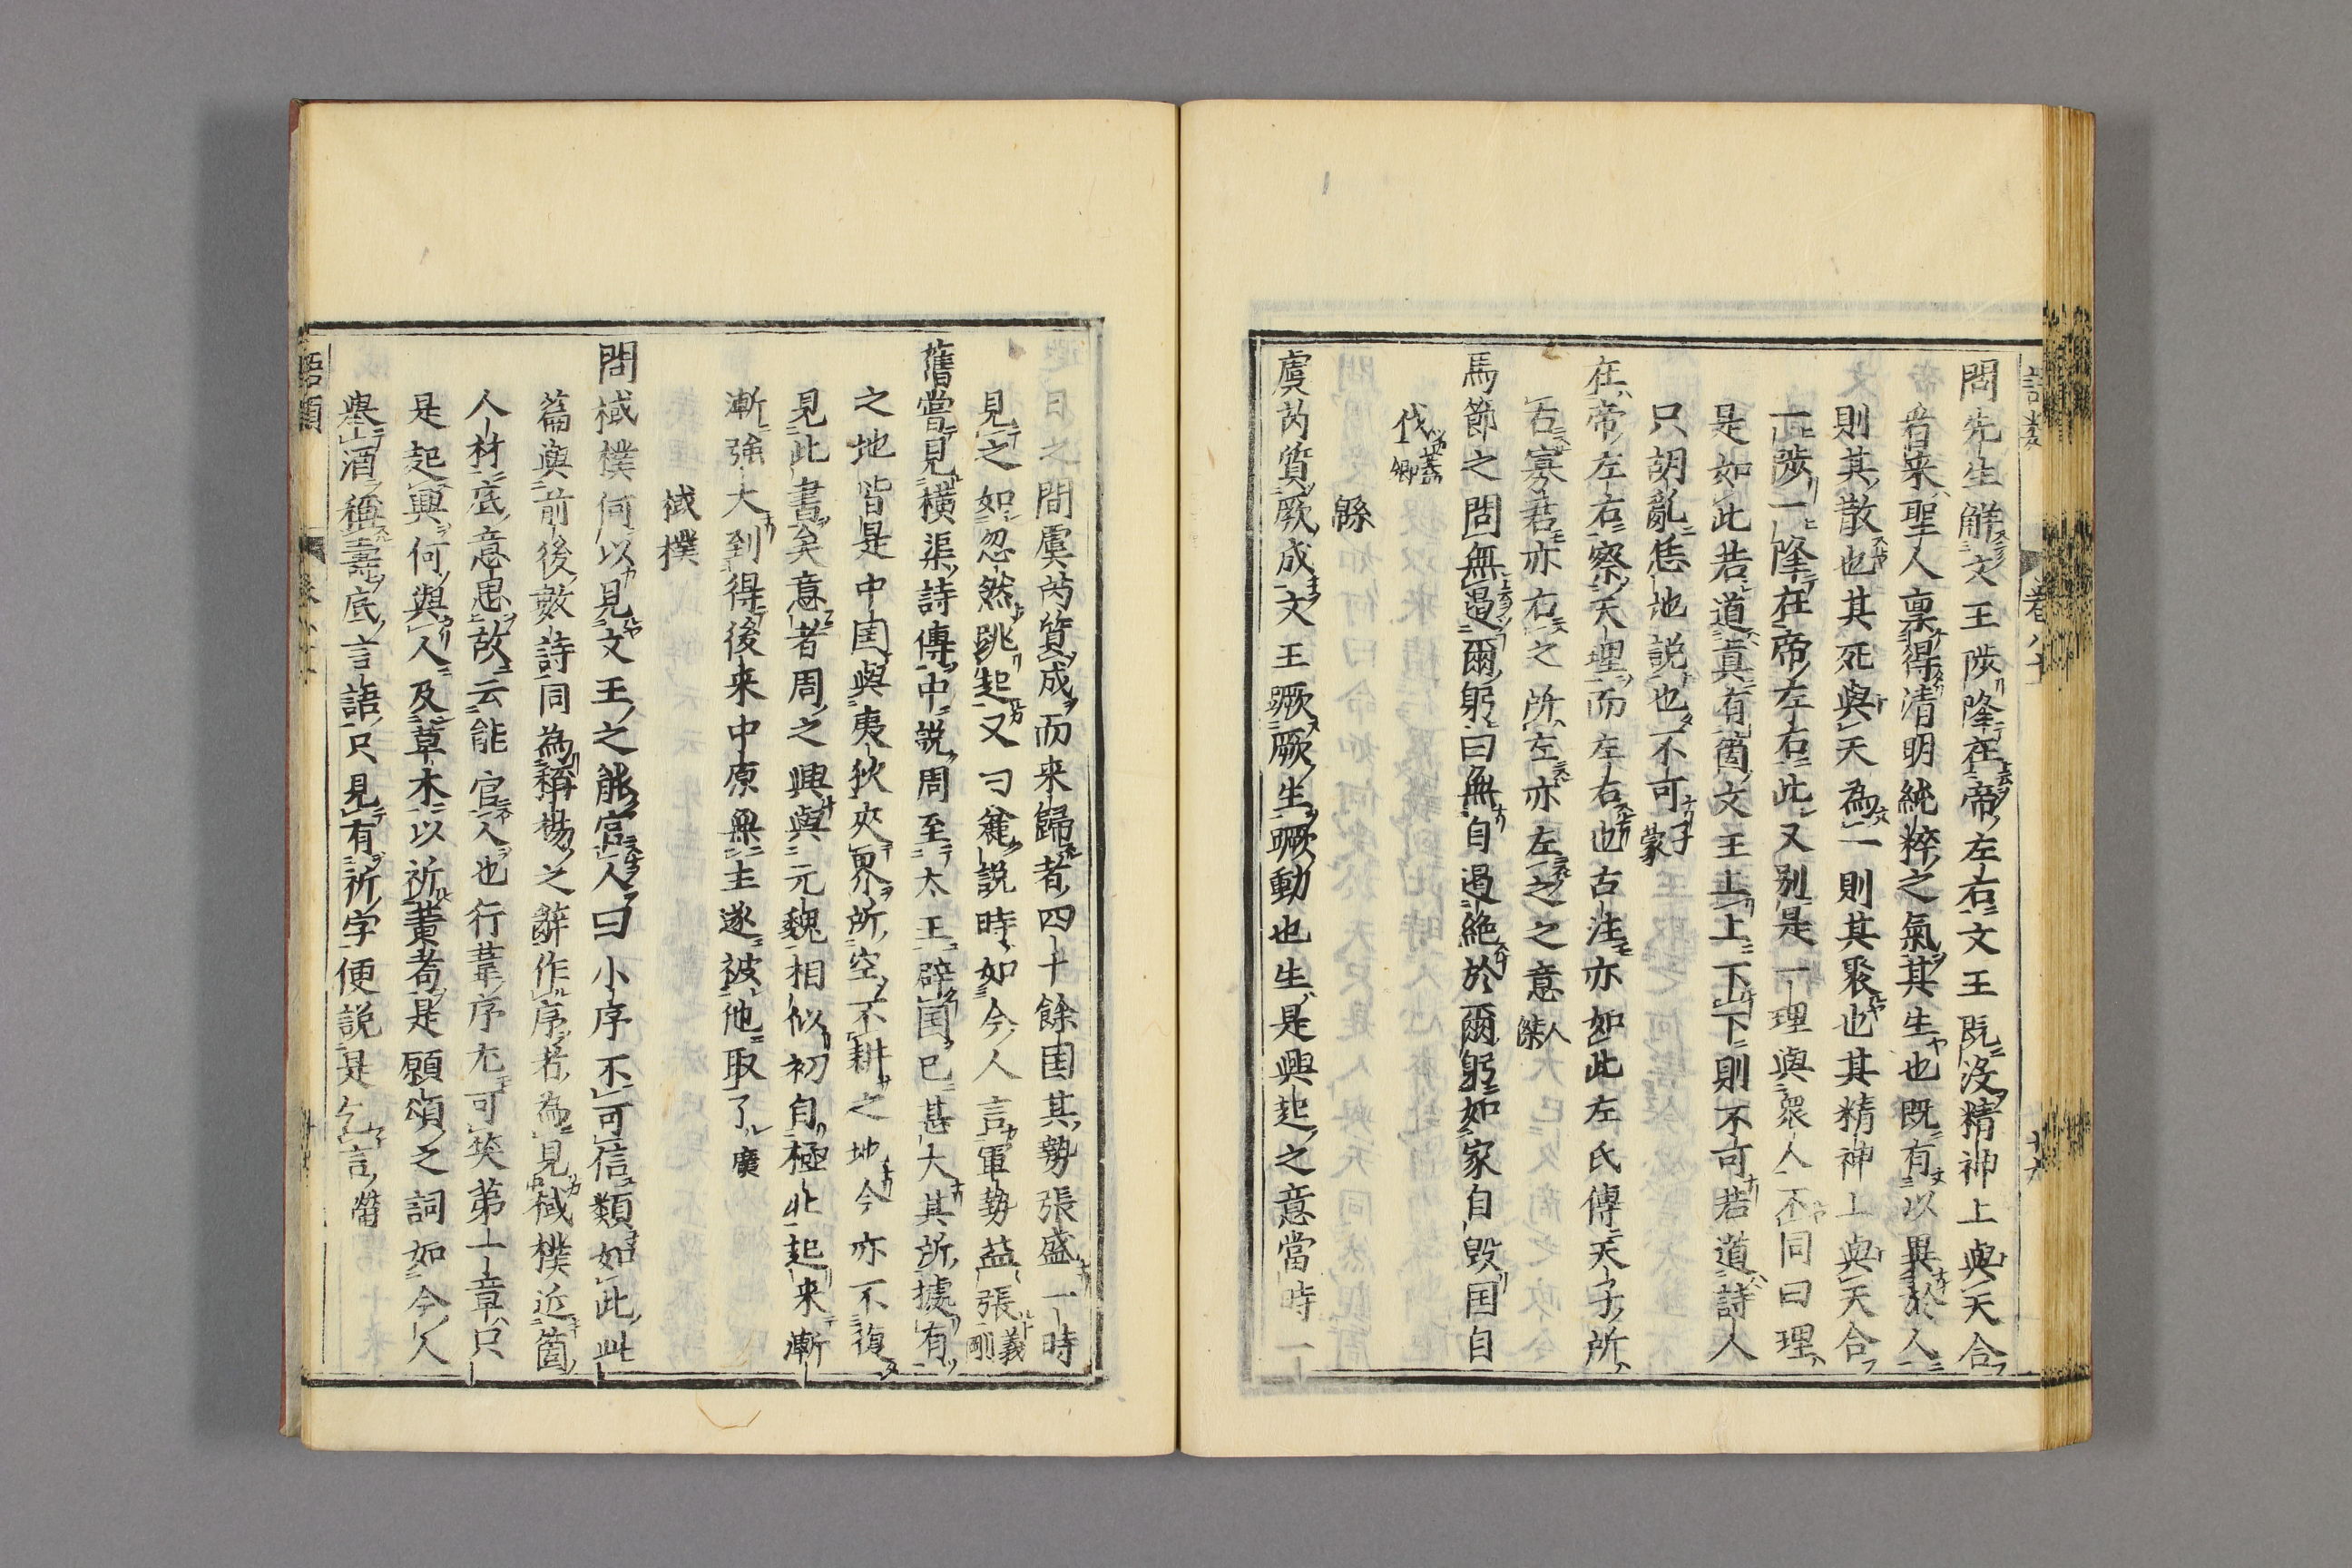 問先生解文王陟降在帝左右文王既没精神上與天合
看来聖人稟得清明純粹之氣其生也既有以異於人
則其散也其死與天為一則其聚也其精神上與天合
一陟一降在帝左右此又別是一理與衆人不同曰理
是如此若道真有箇文王上上下下則不可若道詩人
只胡亂恁地説也不可子蒙
在帝左右察天理而左右也古注亦如此左氏傳天子所
右寡君亦右之所左亦左之之意人傑
馬節之問無遏爾躬曰無自遏絶於爾躬如家自毀国自
伐蓋卿
緜
虞芮質厥成文王蹶厥生蹶動也生是興起之意當時一
日之間虞芮質成而来歸者四十餘国其勢張盛一時
見之如忽然跳起又曰麄説時如今人言軍勢益張義剛
舊嘗見横渠詩傳中説周至太王辟国已甚大其所據有
之地皆是中国與夷狄夾界所空不耕之地今亦不復
見此書矣意者周之興與元魏相似初自極北起来漸
漸強大到得後来中原無主遂被他取了廣
棫樸
問棫樸何以見文王之能官人曰小序不可信類如此此
篇與前後數詩同為稱揚之辭作序者為見棫樸近箇
人材底意思故云能官人也行葦序尤可笑第一章只
是起興何與人及草木以祈黄耇是願頌之詞如今人
擧酒稱壽底言語只見有祈字便説是乞言㽦
語類
卷八十一